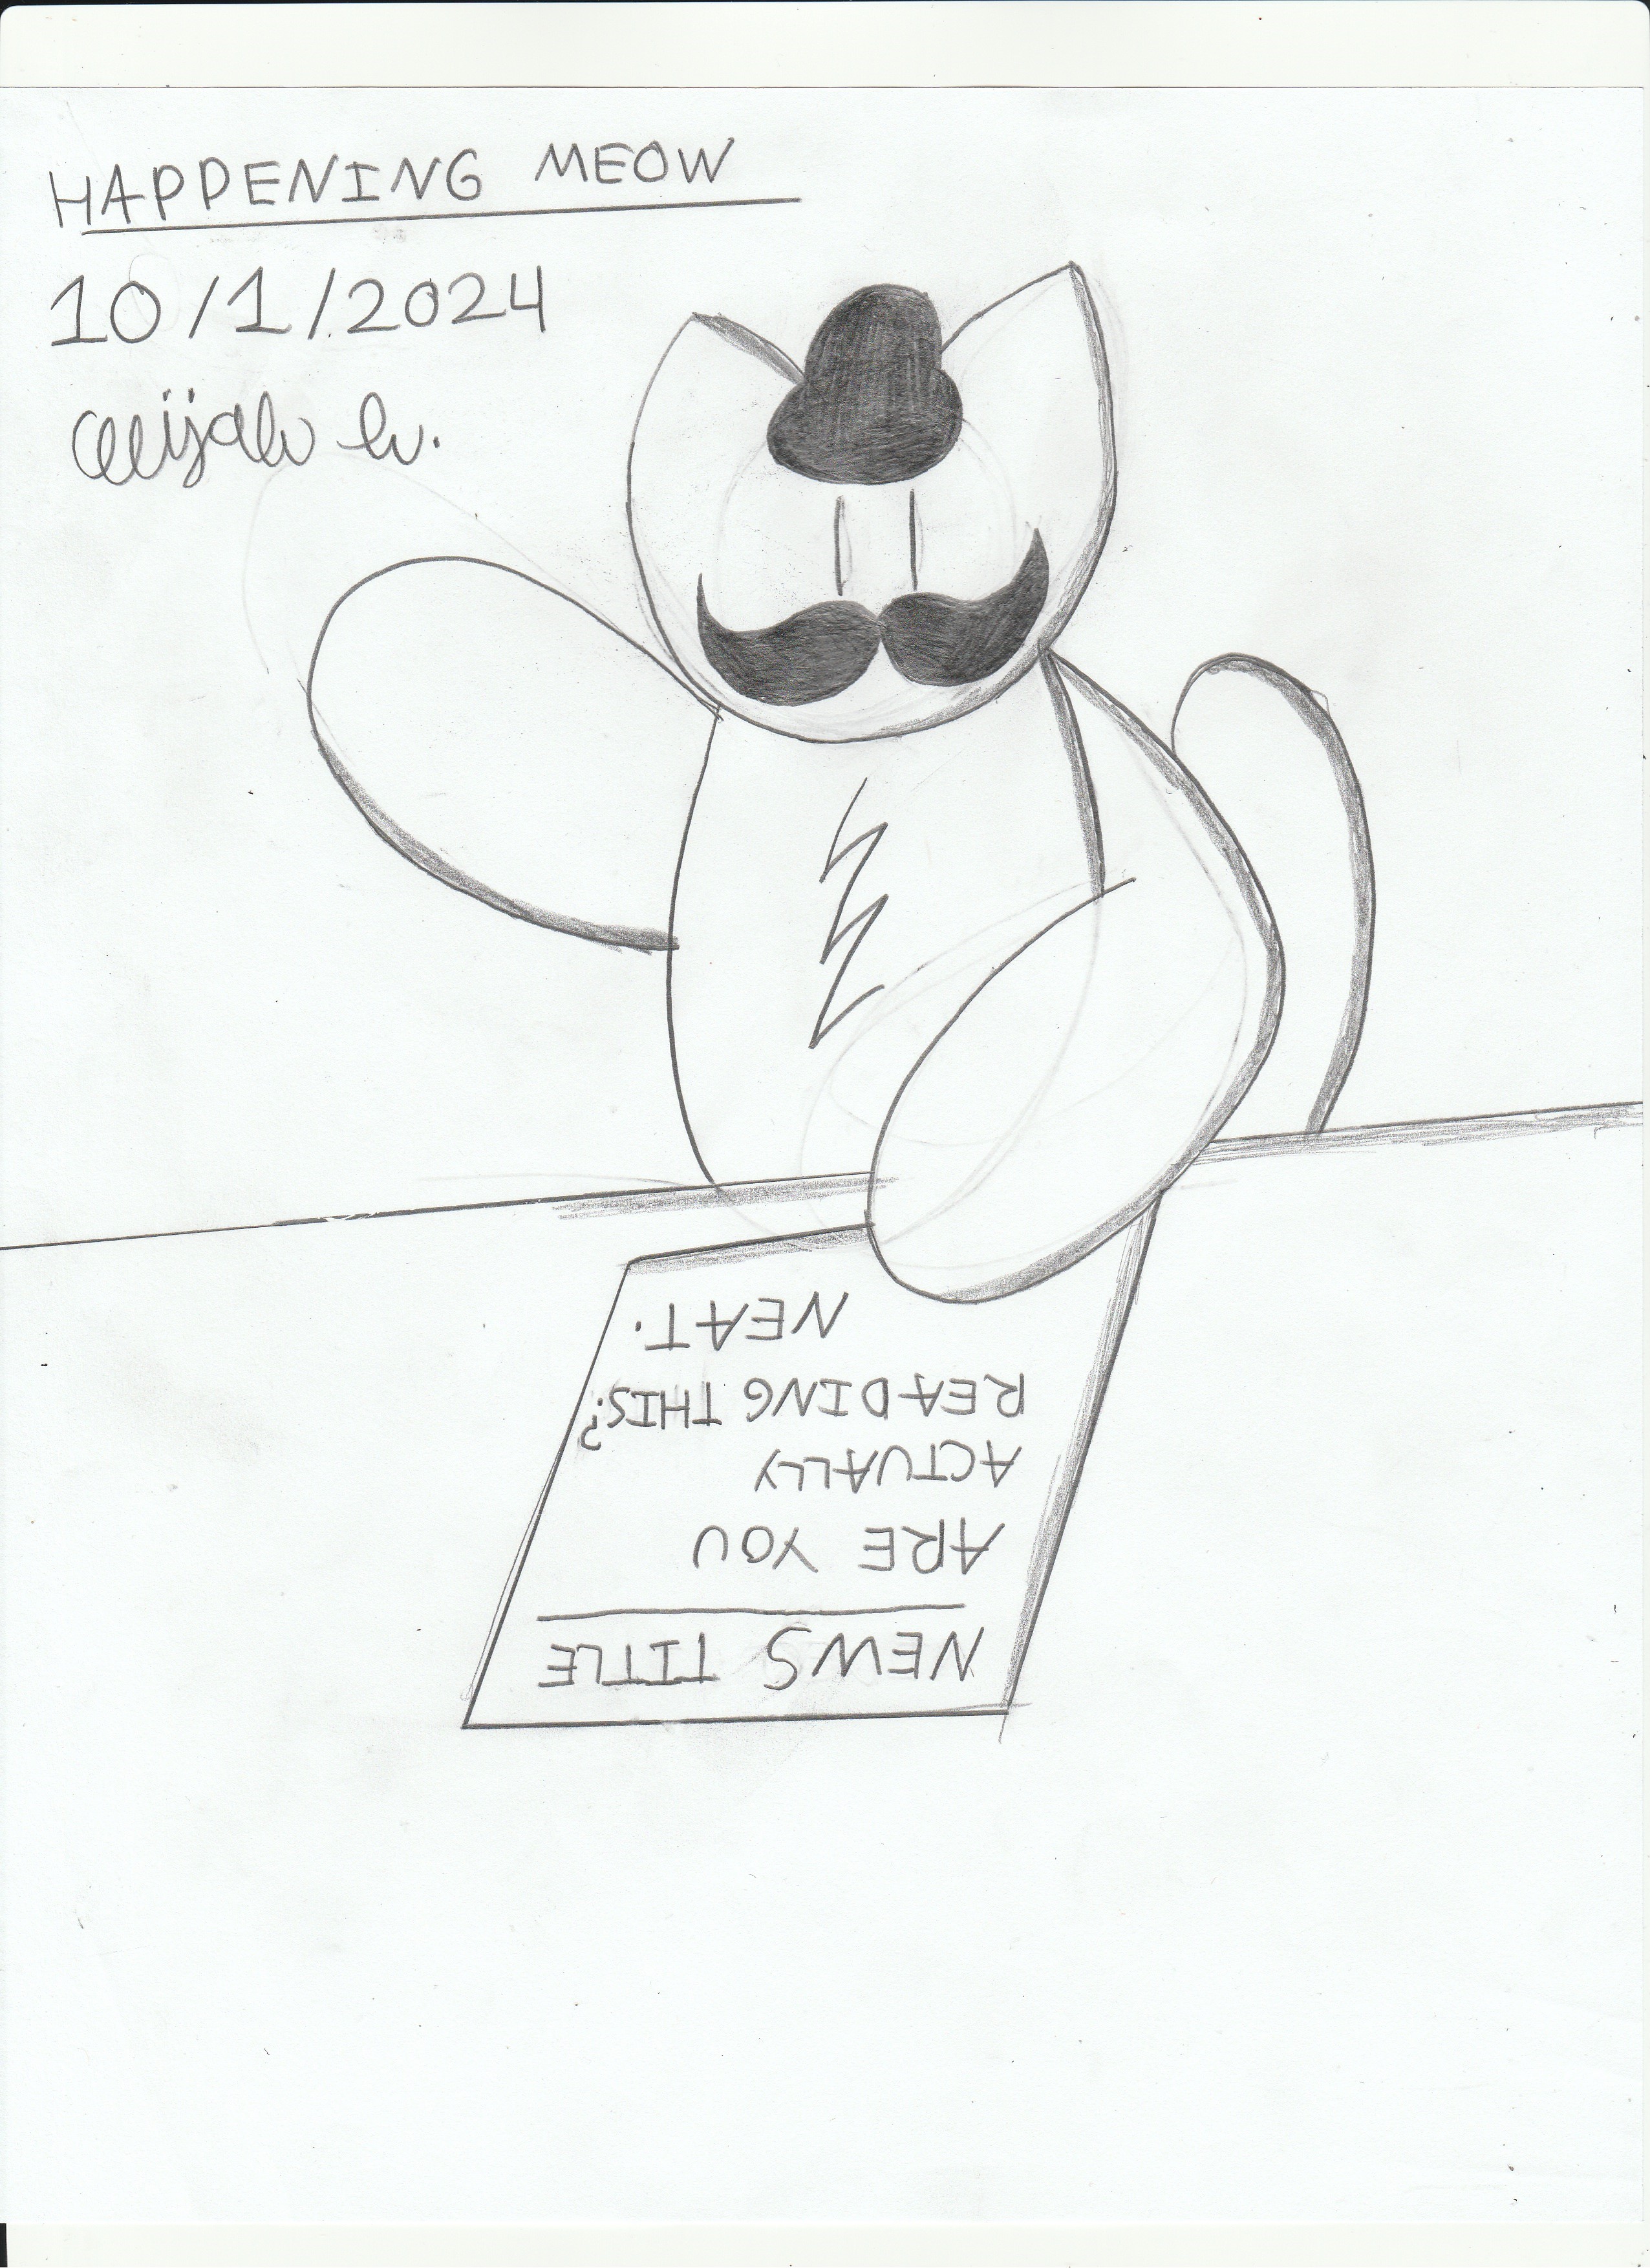 HAPPENING MEOW
10/1/2024
NEWS TITLE
ARE YOU
ACTUALLY
READING THIS?
NEAT.